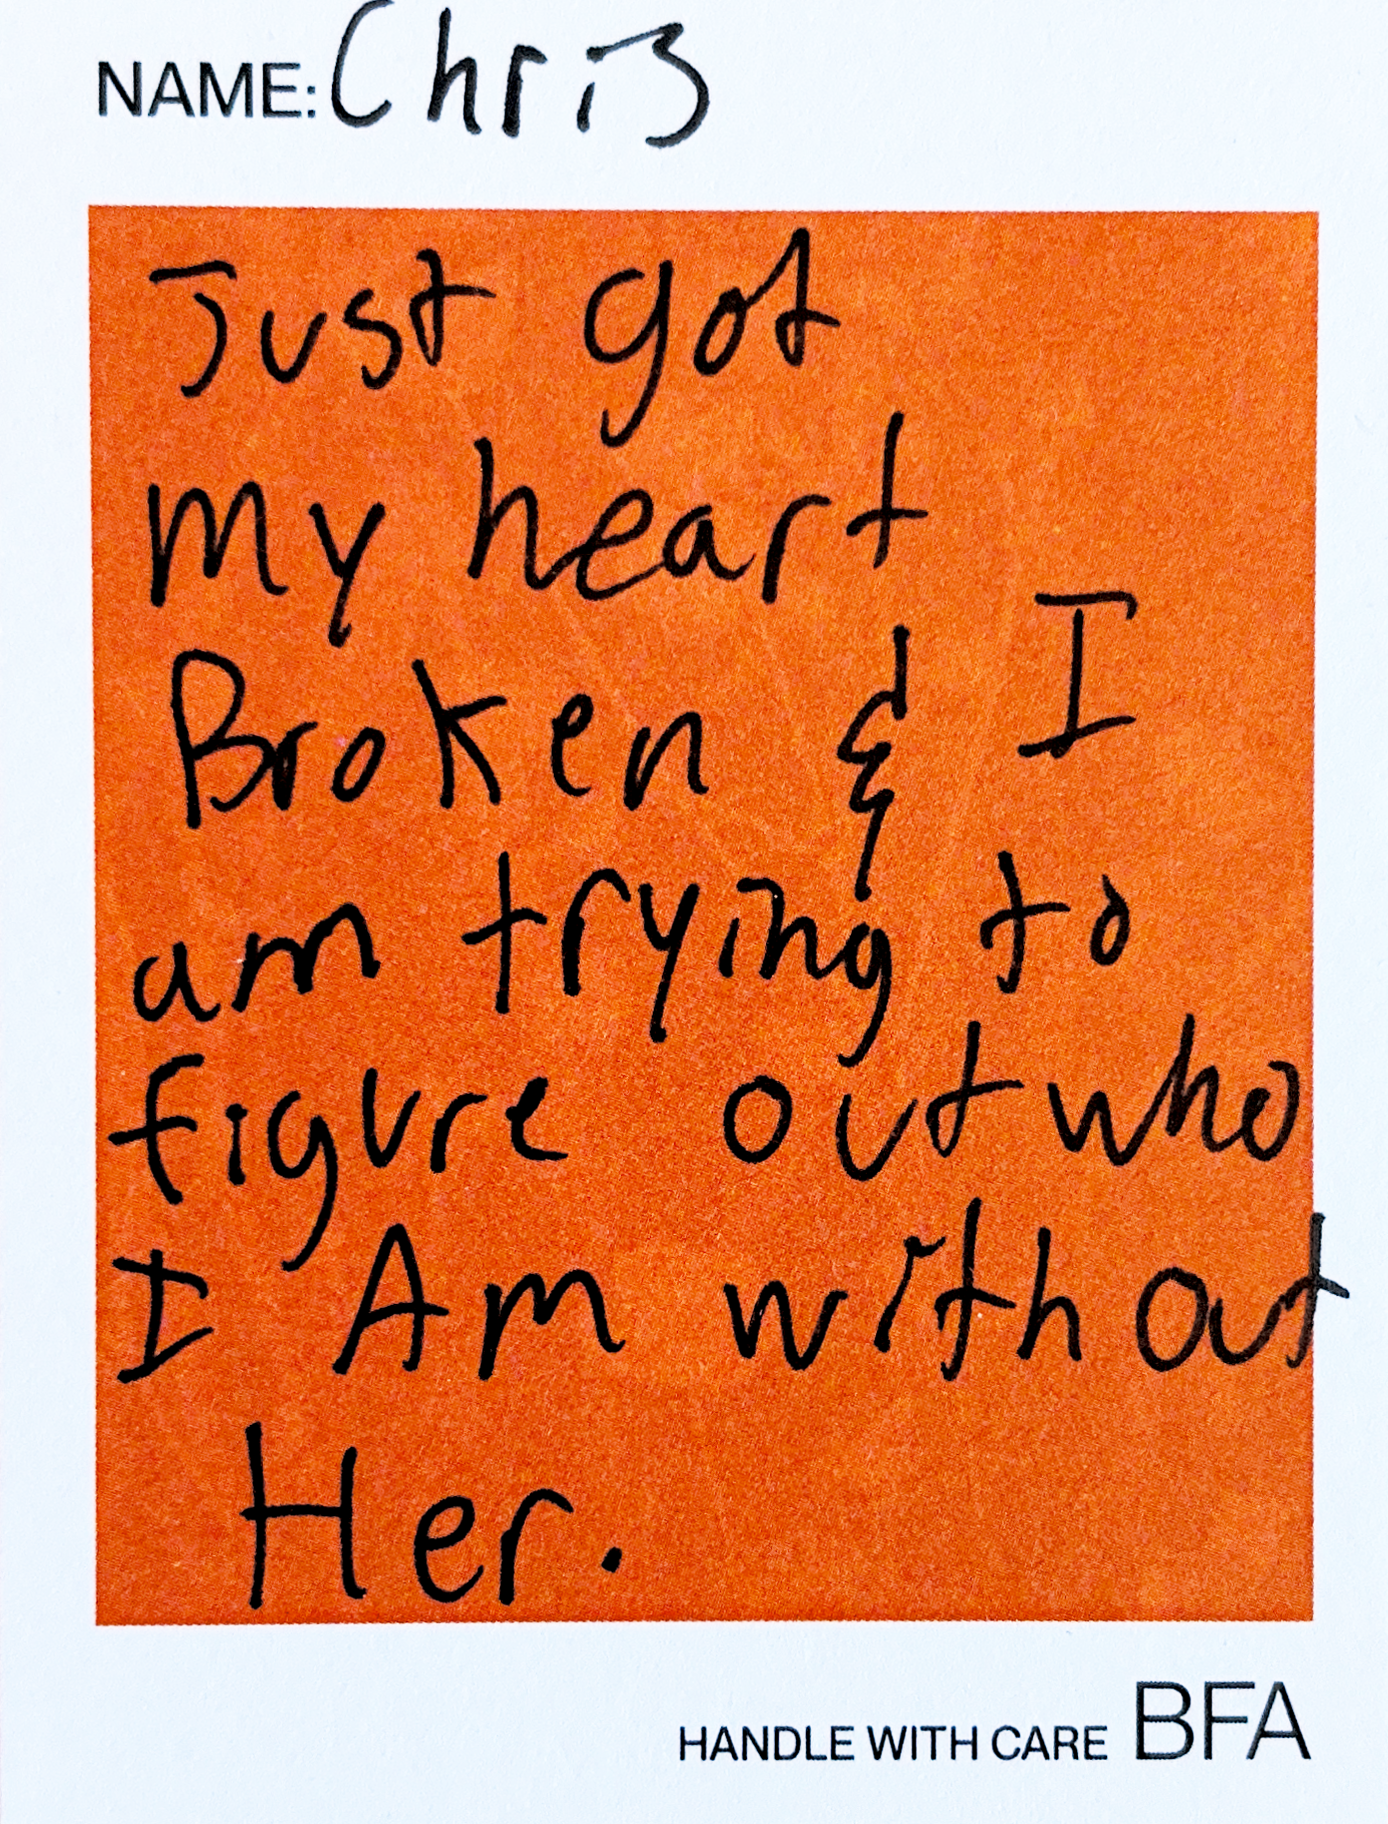 NAME: Chris
Just got
my heart
Broken & I
am trying to
figure out who
I Am without
Her.
HANDLE WITH CARE BFA